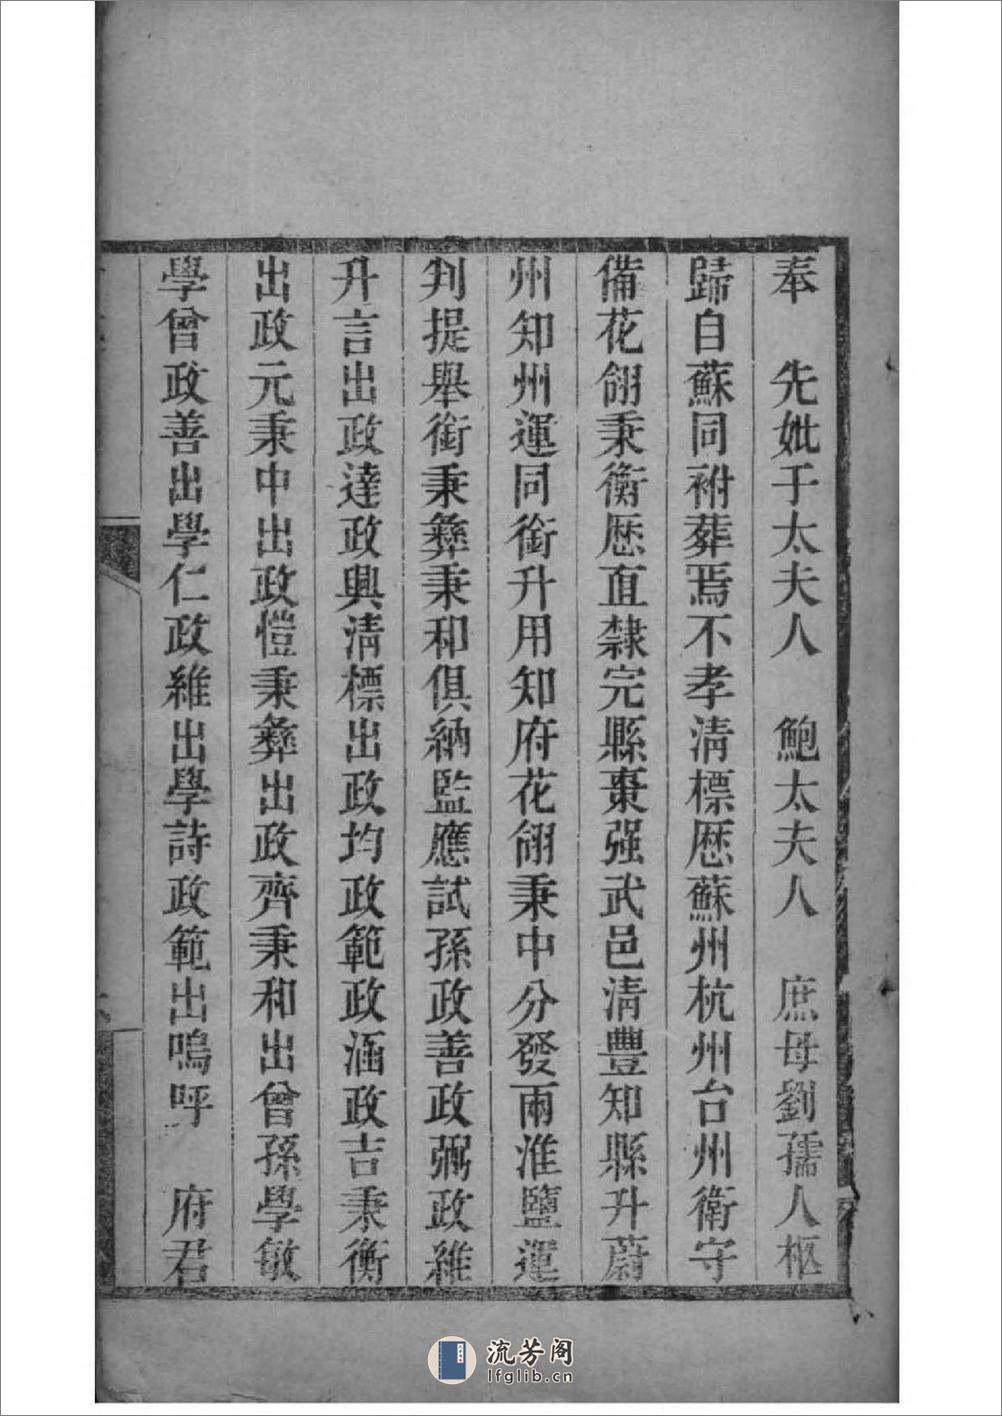 奉　先妣于太夫人　鮑太夫人　庶母劉孺人柩
歸自蘇同祔葬焉不孝淸標歴蘇州杭州台州衛守
備花翎秉衡歴直隸完縣棗强武邑淸豐知縣升蔚
州知州運同銜升用知府花翎秉中分發兩淮鹽運
判提舉銜秉彝秉和俱納監應試孫政善政弼政維
升言出政達政興淸標出政均政範政涵政吉秉衡
出政元秉中出政愷秉彝出政齊秉和出曾孫學敏
學曾政善出學仁政維出學詩政範出嗚呼　府君
流芳阁
lfglib.cn